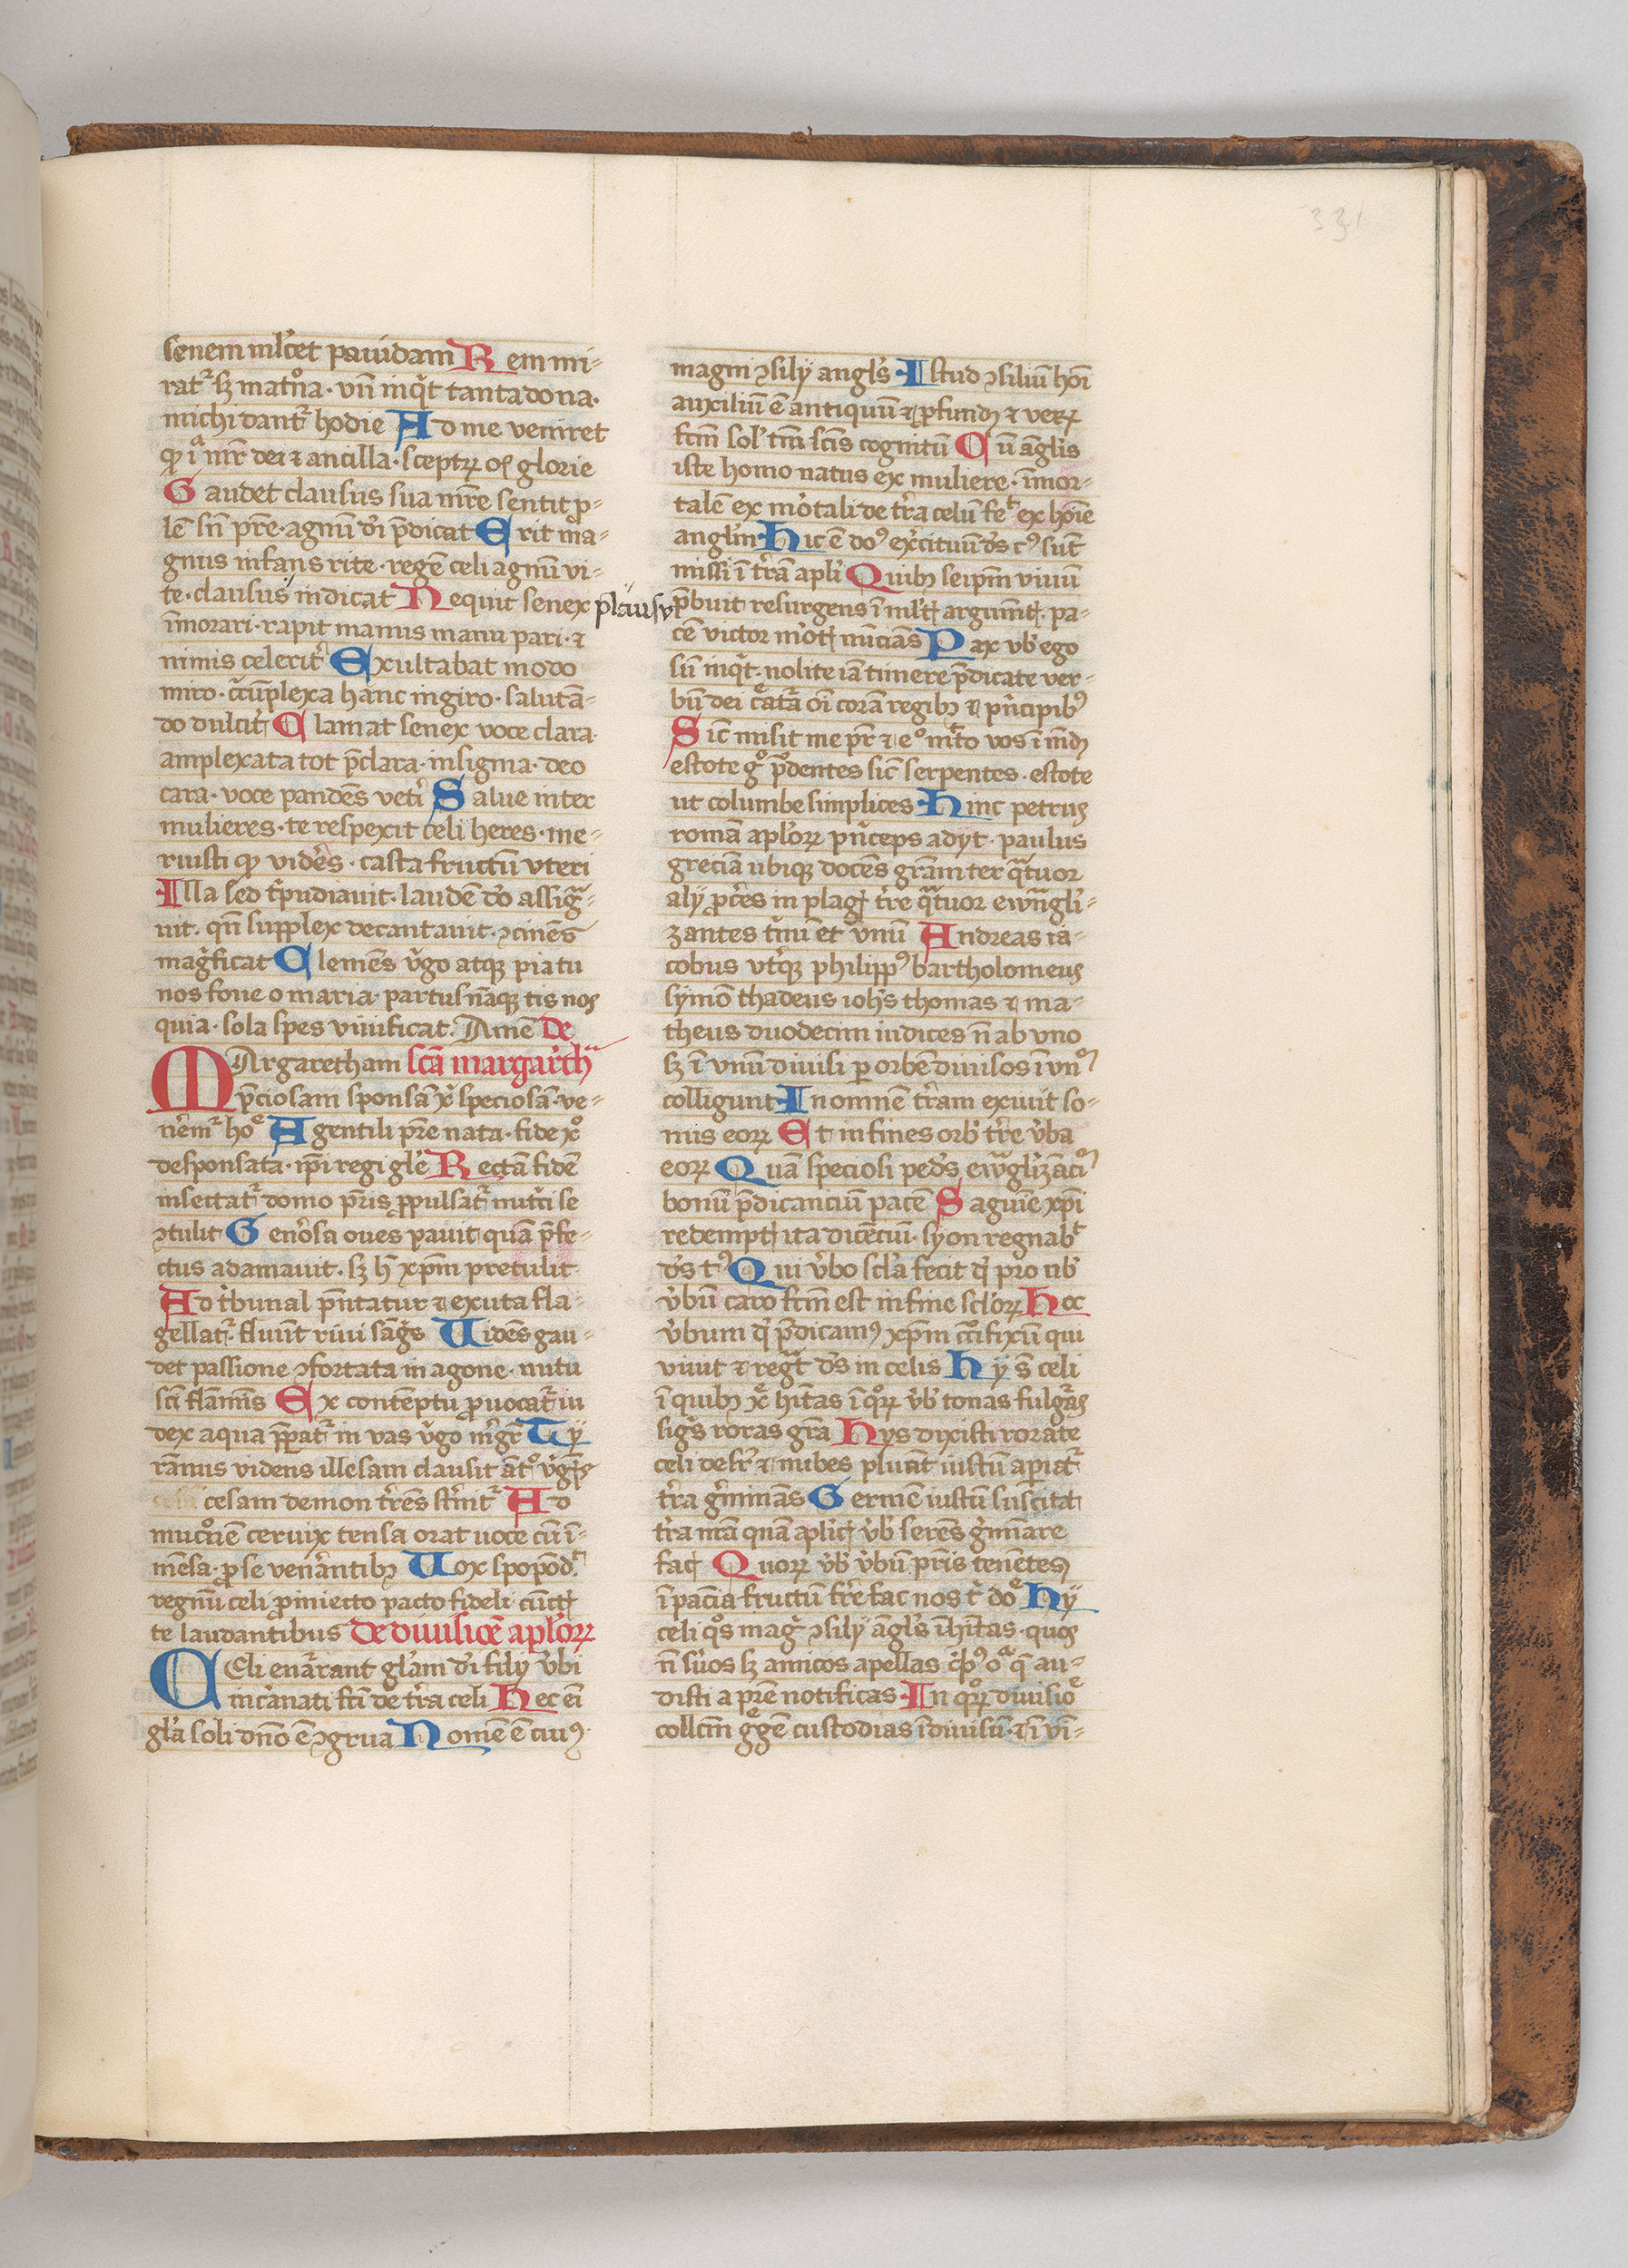 331
senem mlcet pauidam Rem mi-
rat᷑ sz matrōa · vn̄ inq̇t tanta dona ·
michi dant᷑ hodie Ad me veniret
q̇ i mr̄ dei ⁊ ancilla · sceptꝝ glorie
Gaudet clausus sua mr̄e sentit ꝓ-
lē sn̄ pr̄e · agnū di p̄dicat Erit ma-
gnus infans rite · regē celi agnū vi-
te · clausus indicat Nequit senex plausꝰ
īmorari · rapit manus manu pari · ⁊
nimis celerit᷑ Exultabat modo
miro · c̄ūplexa hanc in giro · salutā-
do dulcit᷑ Clamat senex voce clara
amplexata tot p̄clara · insignia · deo
cara · voce pandēs vet̄i Salue inter
mulieres · te respexit celi heres · me-
ruisti ꝙ vidēs · casta fructū vteri
Illa sed t̄pudiauit · laudē do assig̃-
uit · qn̄ supplex decantauit · ꝯcinēs
mag̃ficat Clemēs v̇go atqꝫ pia tu
nos foue o maria partus nāqꝫ tis nos
quia · sola spes viuificat · Amē De
MArgaretham scā margar̄th̄
p̄ciosam sponsā x̄ speciosā ve-
nēm᷑ hoᵉ A gentili pr̄e nata · fide x̄o
desponsata · ip̄i regi gl̄e Rectā fidē
insectat᷑ domo pr̄is ꝓpulsat᷑ nut̄ci se
ꝯtulit Genōsa oues pauit quā p̄fe-
ctus adamauit · sz h̄ xp̄m pretulit
Ad t̄bunal p̄ntatur ⁊ exuta fla-
gellat᷑ · fluūt riui sāg̃s Uidēs gau-
det passione ꝯfortata in agone · nutu
sci flāmīs Ex contēptu ꝓuocat᷑ iu
dex aqua p̄parat᷑ in vas v̇go m̄gr̄ Ty
rānus videns illesam clausit
cesam demon t̄rēs st̄nit᷑ Ad
mucrōnē ceruix tensa orat uoce cū ī-
mēsa · ꝓ se veneantibꝫ Uox spopōd᷑
regnū celi ꝓ iniecto pacto fideli · cūct̄
te laudantibus De diuisioē apl̄oꝝ
CEli enarrant gl̄am di fily v̇bi
incarnati fc̄i de t̄ra celi Hec ei
gl̄a soli dn̄o ē ꝯgrua Nomē ē eiuꝰ
magni ꝯsily angl̄s Istud ꝯsiliū hoī
auxiliū ē antiquū ⁊ ꝓfundꝫ ⁊ veꝝ
fc̄m solˀ tm̄ scīs cognitū Cū āglis
iste homo natus ex muliere · īmor-
talē ex mōtali de t̄ra celū feᶜ ex hoīe
anglm̄ Hic ē doˀ ex̄cituū ds cˀ sūt
missi ī t̄rā apl̄i Quibꝫ seip̄m viuū
p̄buit resurgens ī ml̄t̄ argum̄t̄ · pa-
cē victor mōt̄ nūciās Pax vob̄ ego
sū inq̇t · nolite iā timere p̄dicate ver-
bū dei c̄atᷓ oī coram regibꝫ ⁊ p̄ncipibꝰ
Sic misit me pr̄ ⁊ eᵒ mītto vos ī mūdꝫ
estote gᵒ p̄dentes sic serpentes · estote
ut columbe simplices Hinc petrus
romā apl̄oꝝ p̄nceps adyt · paulus
greciā ubiqꝫ docēs grām ter q̃tuor
aly ꝓcēs in plaḡ t̄re q̃tuor ewāgli-
zantes t̄nū et vnū Andreas ia-
cobus vt̄qꝫ philippꝰ bartholomeus
symō thadeus ioh̄s thomas ⁊ ma-
theus duodecim iudices n̄ ab vno
sz ī vnū diuisi per orbē diuisos ī vnᵒ
colligunt In omnē t̄ram exiuit so-
nus eoꝝ Et in fines orb̄ t̄re v̇ba
eoꝝ Quā speciosi pedˢ ewāglizāciū
bonū p̄dicanciū pacē Saguīe xp̄i
redempt̄ ita dicēciū · syon regnabᵗ
ds tˀ Qui v̇bo scl̄a fecit q̇ pro nob̄
v̇bū caro fc̄m est in fine scl̄oꝝ Hec
v̇bum q̇ p̄dicamꝰ xp̄m c̄cifixū qui
viuit ⁊ regᵗ ds in celis Hy s̄ celi
ī quibꝫ xᵉ h̄itas ī qᵒꝝ v̇b̄ tonas fulgᵃs
sig̃s roras grā Hys dixisti rorate
celi desr̄ ⁊ nubes pluāt iustū apiat᷑
t̄ra g̃minās Germē iustū suscita
t̄ra nrā quā apl̄ic̄ v̇b̄ serēs g̃mīare
fac̄ Quoꝝ v̇b̄ v̇bū pr̄is tenētes
ī pacīa fructū fr̄e fac nos t᷑ doᵉ Hy
celi qᵒs mag᷑ ꝯsily āgl̄s īh̄itas · quos
n̄ suos sz amicos apellas
disti a pr̄e notificas In qᵒꝝ diuisiōᵉ
collc̄m gᵉgē custodias īdiuisū · ⁊ ī vī-